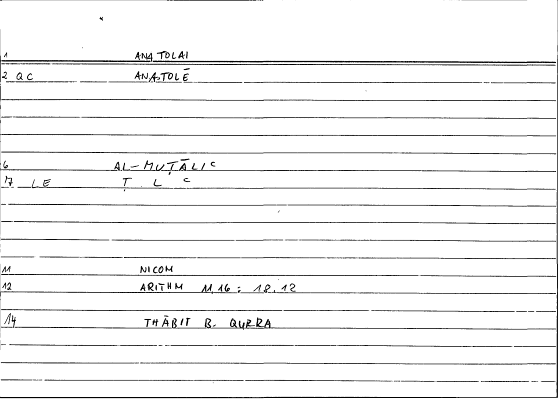 1 ANATOLAI
2 QC ANATOLĒ
6 AL-MUṬĀLIʿ
7 LE Ṭ L ʿ
11 NICOM
12 ARITHM 11,16 : 18,12
14 THĀBIT B. QURRA